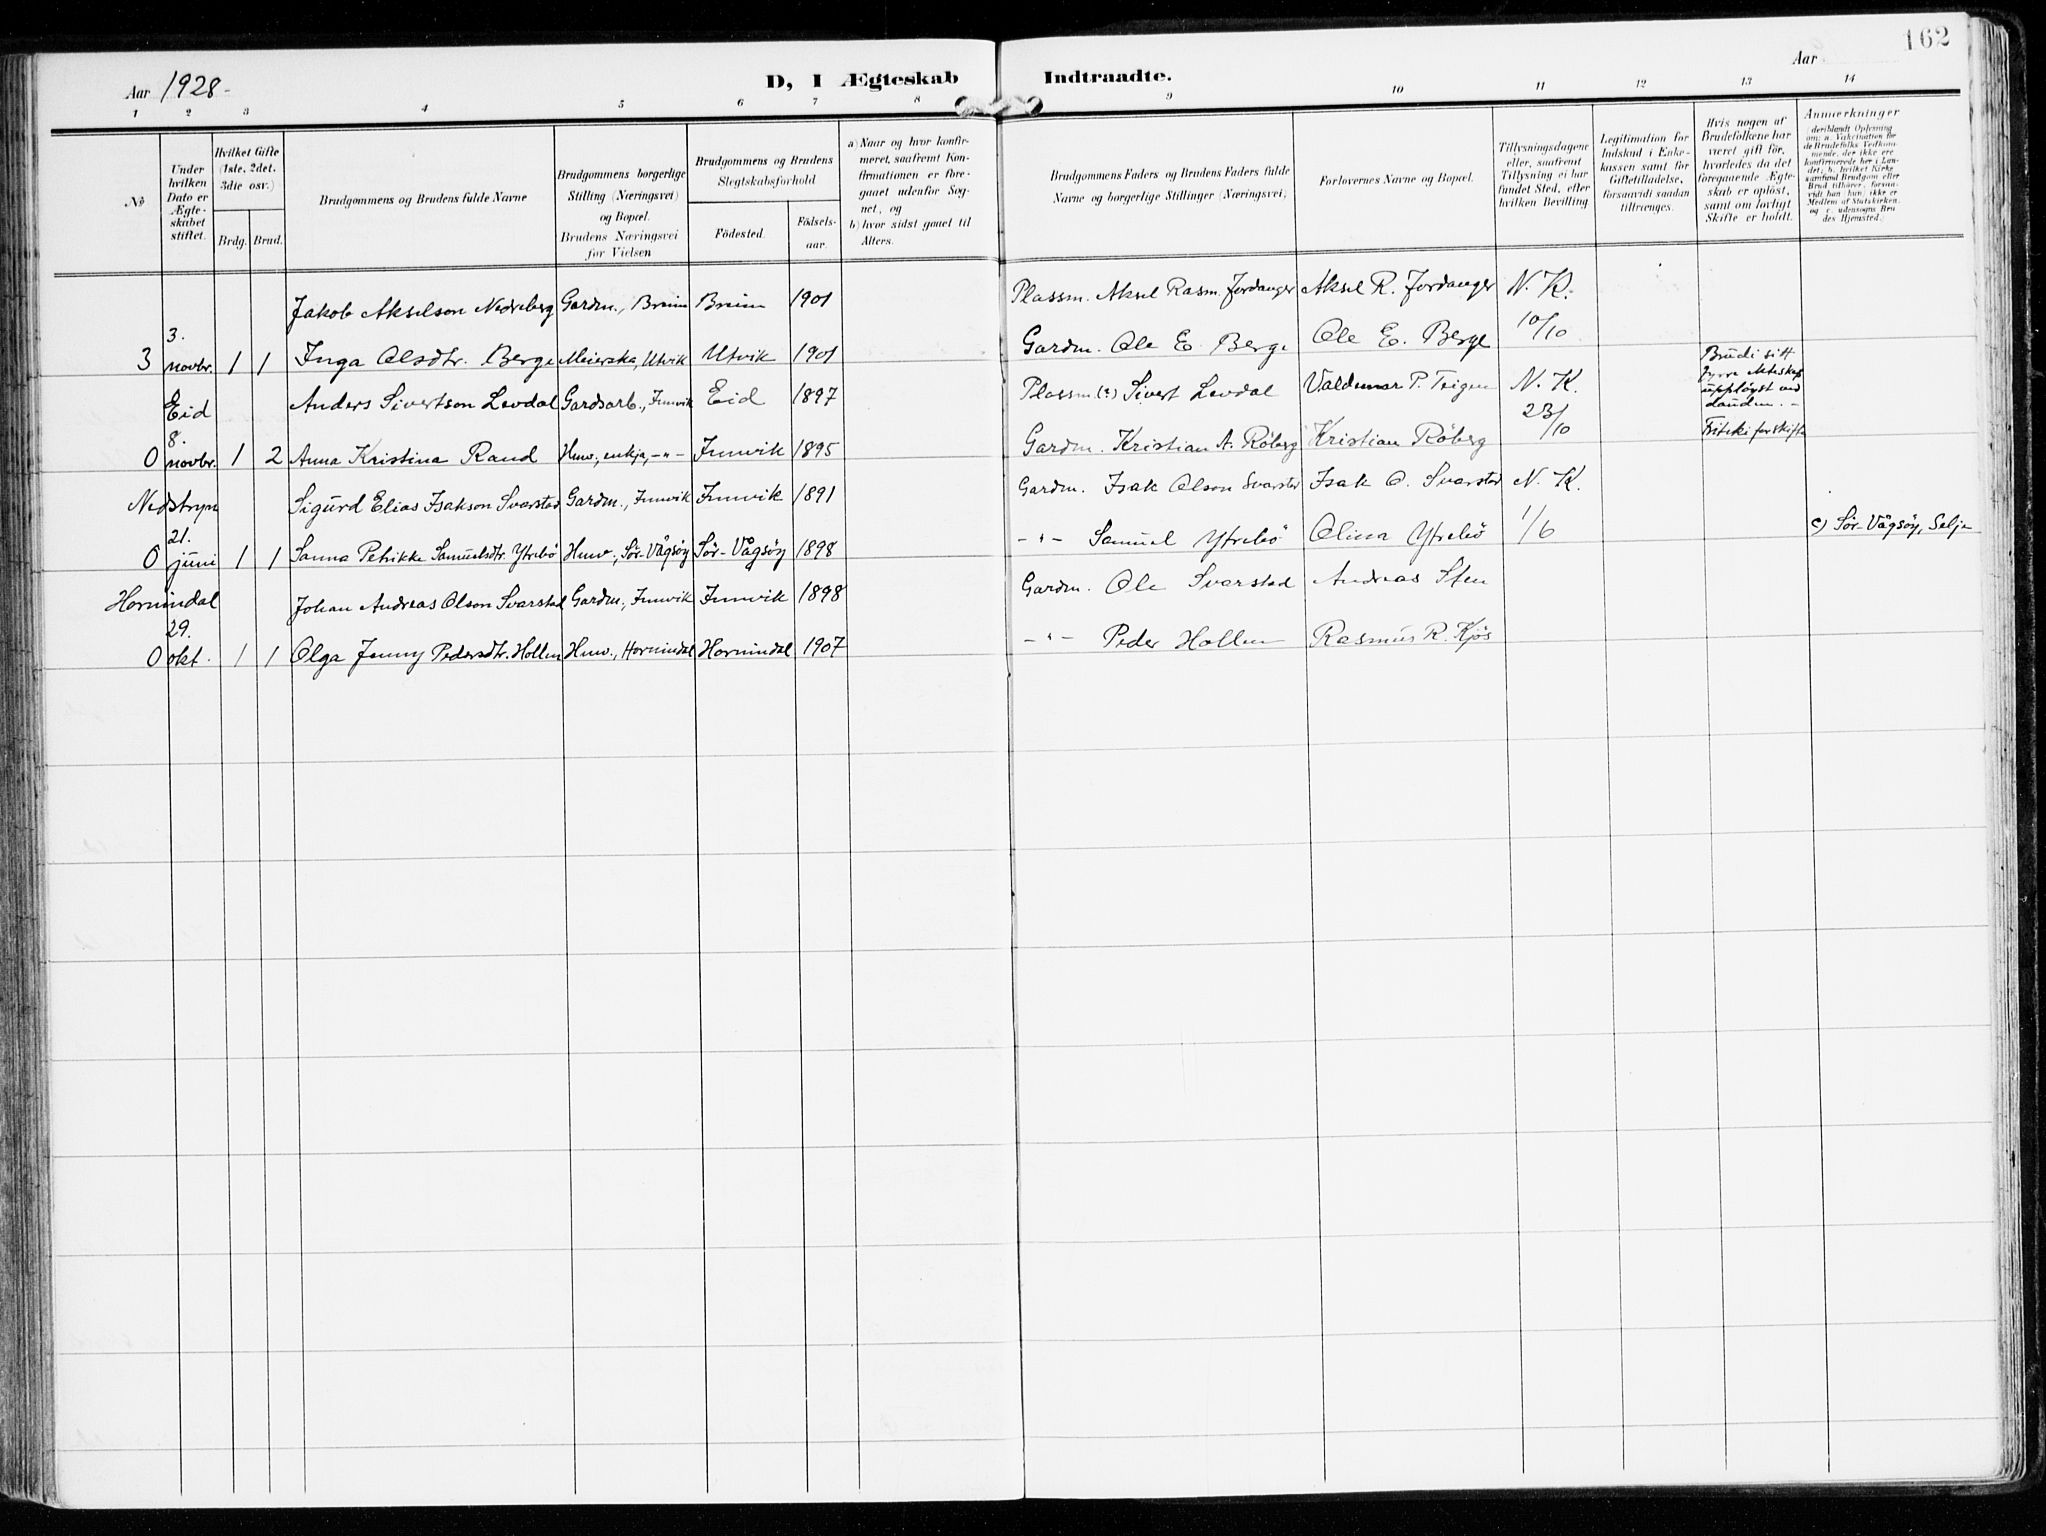 162
Aar 1928.
D, I Ægteskab Indtraadte.
Aar
1 2 3 4 5 6 7 8 9 10 11 12 13 14
No
Under hvilken Dato er Ægteskabet stiftet.
Hvilket Gifte (1ste, 2det, 3die osv.)
Brdg. Brud.
Brudgommens og Brudens fulde Navne
Brudgommens borgerlige Stilling (Næringsvei) og Bopæl. Brudens Næringsvei før Vielsen
Brudgommens og Brudens Slegtskabsforhold
Födested. Födselsaar.
a) Naar og hvor konfirmeret, saafremt Konfirmationen er foregaaet udenfor Sognet, og
b) hvor sidst gaaet til Alters.
Brudgommens Faders og Brudens Faders fulde Navne og borgerlige Stillinger (Næringsvei)
Forlovernes Navne og Bopæl.
Tillysningsdagene eller, saafremt Tillysning ei har fundet Sted, efter hvilken Bevilling
Legitimation for Indskud i Enkekassen samt for Giftetilladelse, forsaavidt saadan tiltrænges.
Hvis nogen af Brudefolkene har været gift før, hvorledes da det foregaaende Ægteskab er opløst, samt om lovligt Skifte er holdt.
Anmærkninger
(deriblandt Oplysning om: a. Vakcination for de Brudefolks Vedkommende, der ikke ere konfirmerede her i Landet; b. hvilket Kirkesamfund Brudgom eller Brud tilhører, forsaavidt han/hun ikke er Medlem af Statskirken, og c. udensogns Brudes Hjemsted.)
Jakob Akselson Nedreberg Gardm., Breim Breim 1901 Plassm. Aksel Rasm. Jordanger Aksel R. Jordanger N. K.
3 3. novbr. 1 1 Inga Olsdtr. Berge Meierska, Utvik Utvik 1901 Gardm. Ole E. Berge Ole E. Berge 10/10
Eid Anders Sivertson Levdal Gardsarb., Innvik Eid 1897 Plassm. (?) Sivert Levdal Valdemar P. Teigen N. K. Brudi sitt fyrre ekteskap uppløyst ved dauden. -
0 8. novbr. 1 2 Anna Kristina Rand Husv., enkja, -"- Innvik 1895 Gardm. Kristian A. Röberg Kristian Röberg 23/10 Friteki for skifte
Nedstryn Sigurd Elias Isakson Svarstad Gardm., Innvik Innvik 1891 Gardm. Isak Olson Svarstad Isak O. Svarstad N. K.
0 21. juni 1 1 Sanna Petrikke Samuelsdtr. Ytrebö Husv., Sør-Vågsøy Sør-Vågsøy 1898 -"- Samuel Ytrebö Olina Ytrebö 1/6 c) Sør-Vågsøy, Selje
Hornindal Johan Andreas Olson Svarstad Gardm., Innvik Innvik 1898 Gardm. Ole Svarstad Andreas Sten
0 29. okt. 1 1 Olga Jenny Pedersdtr. Hollen Husv., Hornindal Hornindal 1907 -"- Peder Hollen Rasmus R. Kjös